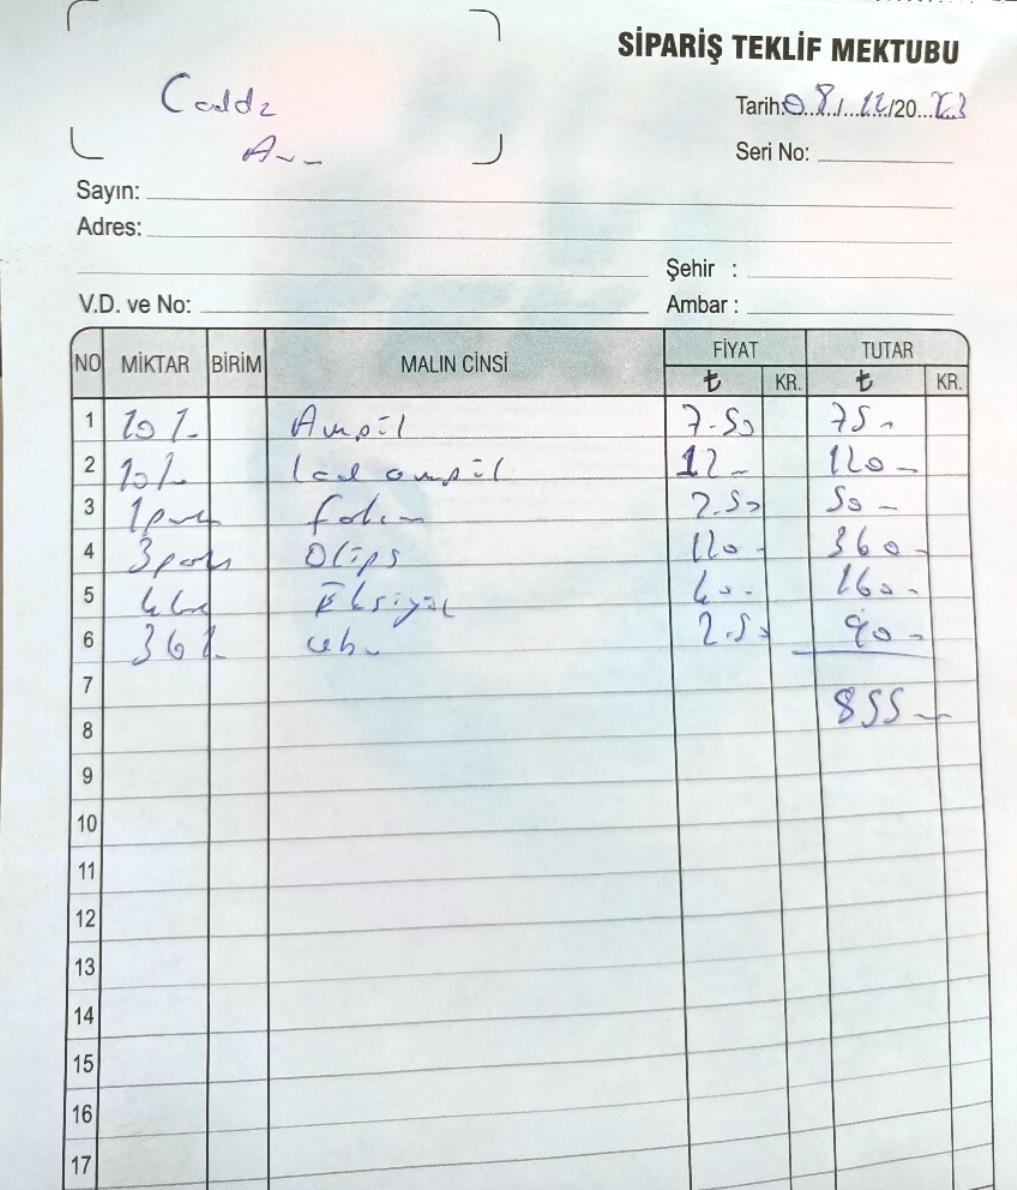 SİPARİŞ TEKLİF MEKTUBU
Cadde
Tarih:08/12/2023
Seri No:
Sayın:
Adres:
Şehir :
V.D. ve No:
Ambar :
NO MİKTAR BİRİM MALIN CİNSİ FİYAT TUTAR
₺ KR. ₺ KR.
1 10 Ampül 7.50 75
2 10 led ampül 12 120
3 1 2.50 50
4 3 Olips 120 360
5 160
6 36 2.50 90
7
855
8
9
10
11
12
13
14
15
16
17